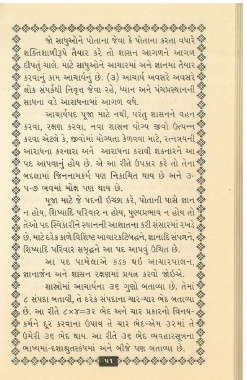 જો સાધુઓને પોતાના જેવા કે પોતાના કરતા વધારે
શક્તિશાળીરૂપે તૈયાર કરે તો શાસન આગળને આગળ
દીપતું ચાલે. માટે સાધુઓને આચારમાં અને જ્ઞાનમાં તૈયાર
કરવાનું કામ આચાર્યનું છે. (૩) આચાર્ય અવસરે અવસરે
લોક સંપર્કથી નિવૃત્ત જેવા રહે, ધ્યાન અને પંચાસ્થાનની
સાધના વડે આરાધનામાં આગળ વધે.
આચાર્યપદ પૂજા માટે નથી, પરંતુ શાસનને વહન
કરવા, રક્ષણ કરવા, નવા શાસન યોગ્ય જીવો ઉત્પન્ન
કરવા એટલે કે, જીવોમાં યોગ્યતા કેળવવા માટે, રત્નત્રયની
આરાધના કરનારા અને આરાધના કરાવી શકનારને આ
પદ આપવાનું હોય છે. એ આ રીતે ઉપકાર કરે તો તેના
બદલામાં જિનનામકર્મ પણ નિકાચિત થાય છે અને ૩-
૫-૭ ભવમાં મોક્ષ પણ થાય છે.
પૂજા માટે જે પદની ઇચ્છા કરે, પોતાની પાસે જ્ઞાન
ન હોય, શિષ્યાદિ પરિવાર ન હોય, પુણ્યપ્રભાવ ન હોય તો
તેઓ પદ સ્વિકારીને સ્થાનની આશાતના કરી સંસારમાં રખડે
છે. માટે દરેક કાળે વિશિષ્ટ આચારકટિબદ્ધને, જ્ઞાનાદિ સંપન્નને,
શિષ્યાદિ પરિવાર સમૃદ્ધને આ પદ આપવું ઉચિત છે.
આ પદ પામેલાએ કડક થઇ આચારપાલન,
જ્ઞાનાર્જન અને શાસન રક્ષણમાં પ્રયત્ન કરવો જોઇએ.
શાસ્ત્રોમાં આચાર્યના ૩૬ ગુણો બતાવ્યા છે. તેમાં
૮ સંપદા બતાવી, તે દરેક સંપદાના ચાર-ચાર ભેદ બતાવ્યા
છે. આ રીતે ૮×૪=૩૨ ભેદ અને ચાર પ્રકારનો વિનય-
કર્મને દૂર કરવાના ઉપાય તે ચાર ભેદ-એમ ૩૨માં તે
ઉમેરી ૩૬ ભેદ થાય. આ રીતે ૩૬ ભેદ વ્યવહારસૂત્રના
ભાષ્યમાં-દશાશ્રુતસ્કંધમાં અને બીજે પણ બતાવ્યા છે.
૫૧